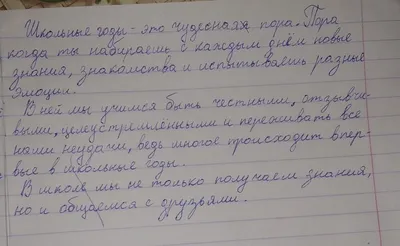 Школьные годы - это чудесная пора. Пора
когда ты набираешь с каждым днём новые
знания, знакомства и испытываешь разные
эмоции.
В ней мы учимся быть честными, отзывчи-
выми, целеустремлёнными и переживать все
нами неудачи, ведь многое происходит впер-
вые в школьные годы.
В школе мы не только получаем знания,
но и общаемся с друзьями.